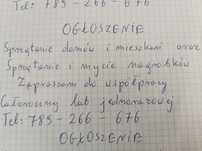 Tel: 789 - 266 - 676
OGŁOSZENIE
Sprzątanie domów i mieszkań oraz
Sprzątanie i mycie nagrobków
Zapraszam do współpracy
Całorocznej lub jednorazowej
Tel: 789 - 266 - 676
OGŁOSZENIE